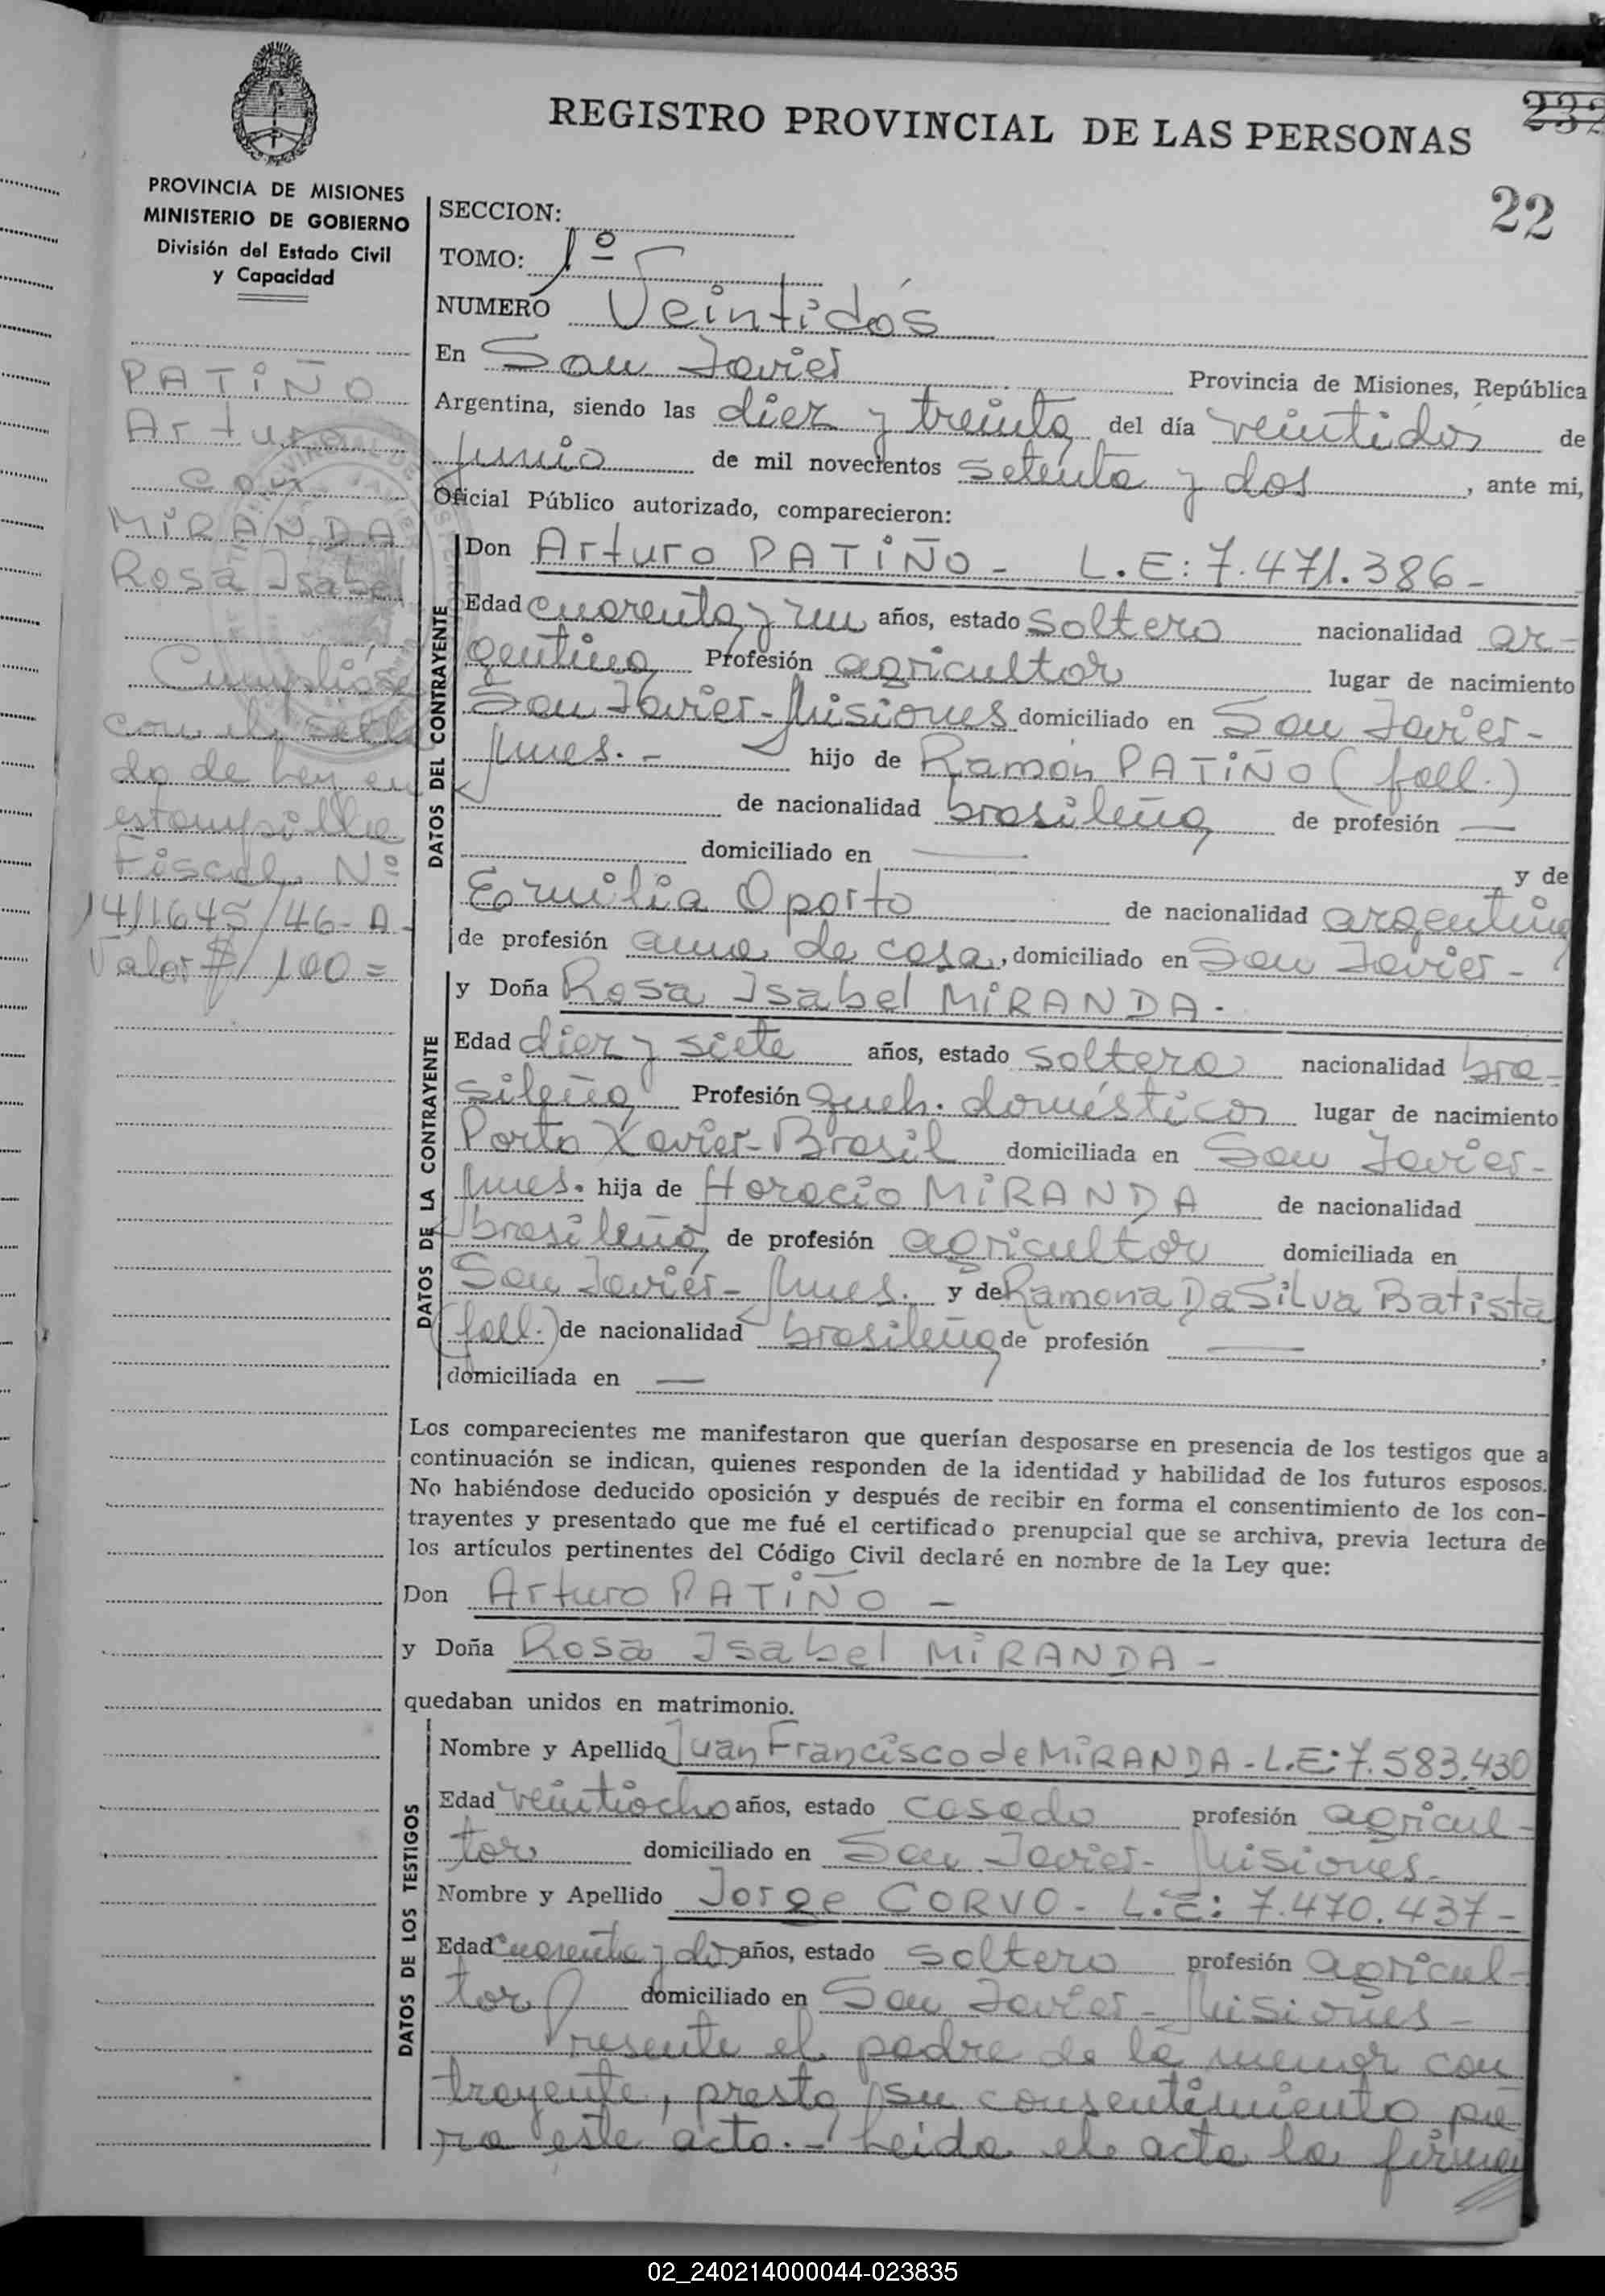 REGISTRO PROVINCIAL DE LAS PERSONAS
232
22
PROVINCIA DE MISIONES
MINISTERIO DE GOBIERNO
División del Estado Civil
y Capacidad
PATIÑO
Arturo
con
MIRANDA
Rosa Isabel
Cumplióse
con el sella
do de Ley en
estampilla
Fiscal Nº
14/1645/46-A-
Valor $/100=
SECCION:
TOMO: 1º
NUMERO Veintidós
En San Javier Provincia de Misiones, República
Argentina, siendo las diez y treinta del día veintidós de
junio de mil novecientos setenta y dos, ante mi,
Oficial Público autorizado, comparecieron:
DATOS DEL CONTRAYENTE
Don Arturo PATIÑO - L.E: 7.471.386 -
Edad cuarenta y un años, estado soltero nacionalidad ar-
gentina Profesión agricultor lugar de nacimiento
San Javier - Misiones domiciliado en San Javier -
Mnes. - hijo de Ramón PATIÑO (fall.)
de nacionalidad brasileña de profesión —
domiciliado en — y de
Ermilia Oporto de nacionalidad argentina
de profesión ama de casa, domiciliado en San Javier -
DATOS DE LA CONTRAYENTE
y Doña Rosa Isabel MIRANDA -
Edad diez y siete años, estado soltera nacionalidad bra-
sileña Profesión queh. domésticos lugar de nacimiento
Porto Xavier - Brasil domiciliada en San Javier -
Mnes. hija de Horacio MIRANDA de nacionalidad
brasileña de profesión agricultor domiciliada en
San Javier - Mnes. y de Ramona Da Silva Batista
(fall.) de nacionalidad brasileña de profesión —,
domiciliada en —
Los comparecientes me manifestaron que querían desposarse en presencia de los testigos que a
continuación se indican, quienes responden de la identidad y habilidad de los futuros esposos.
No habiéndose deducido oposición y después de recibir en forma el consentimiento de los con-
trayentes y presentado que me fué el certificado prenupcial que se archiva, previa lectura de
los artículos pertinentes del Código Civil declaré en nombre de la Ley que:
Don Arturo PATIÑO -
y Doña Rosa Isabel MIRANDA -
quedaban unidos en matrimonio.
DATOS DE LOS TESTIGOS
Nombre y Apellido Juan Francisco de MIRANDA - L.E: 7.583.430
Edad veintiocho años, estado casado profesión agricul-
tor domiciliado en San Javier - Misiones -
Nombre y Apellido Jorge CORVO - L.E: 7.470.437 -
Edad cuarenta y dos años, estado soltero profesión agricul-
tor domiciliado en San Javier - Misiones -
Presente el padre de la menor con
trayente, presta su consentimiento pa
ra este acto. - Leida el acta la firman
02_240214000044-023835